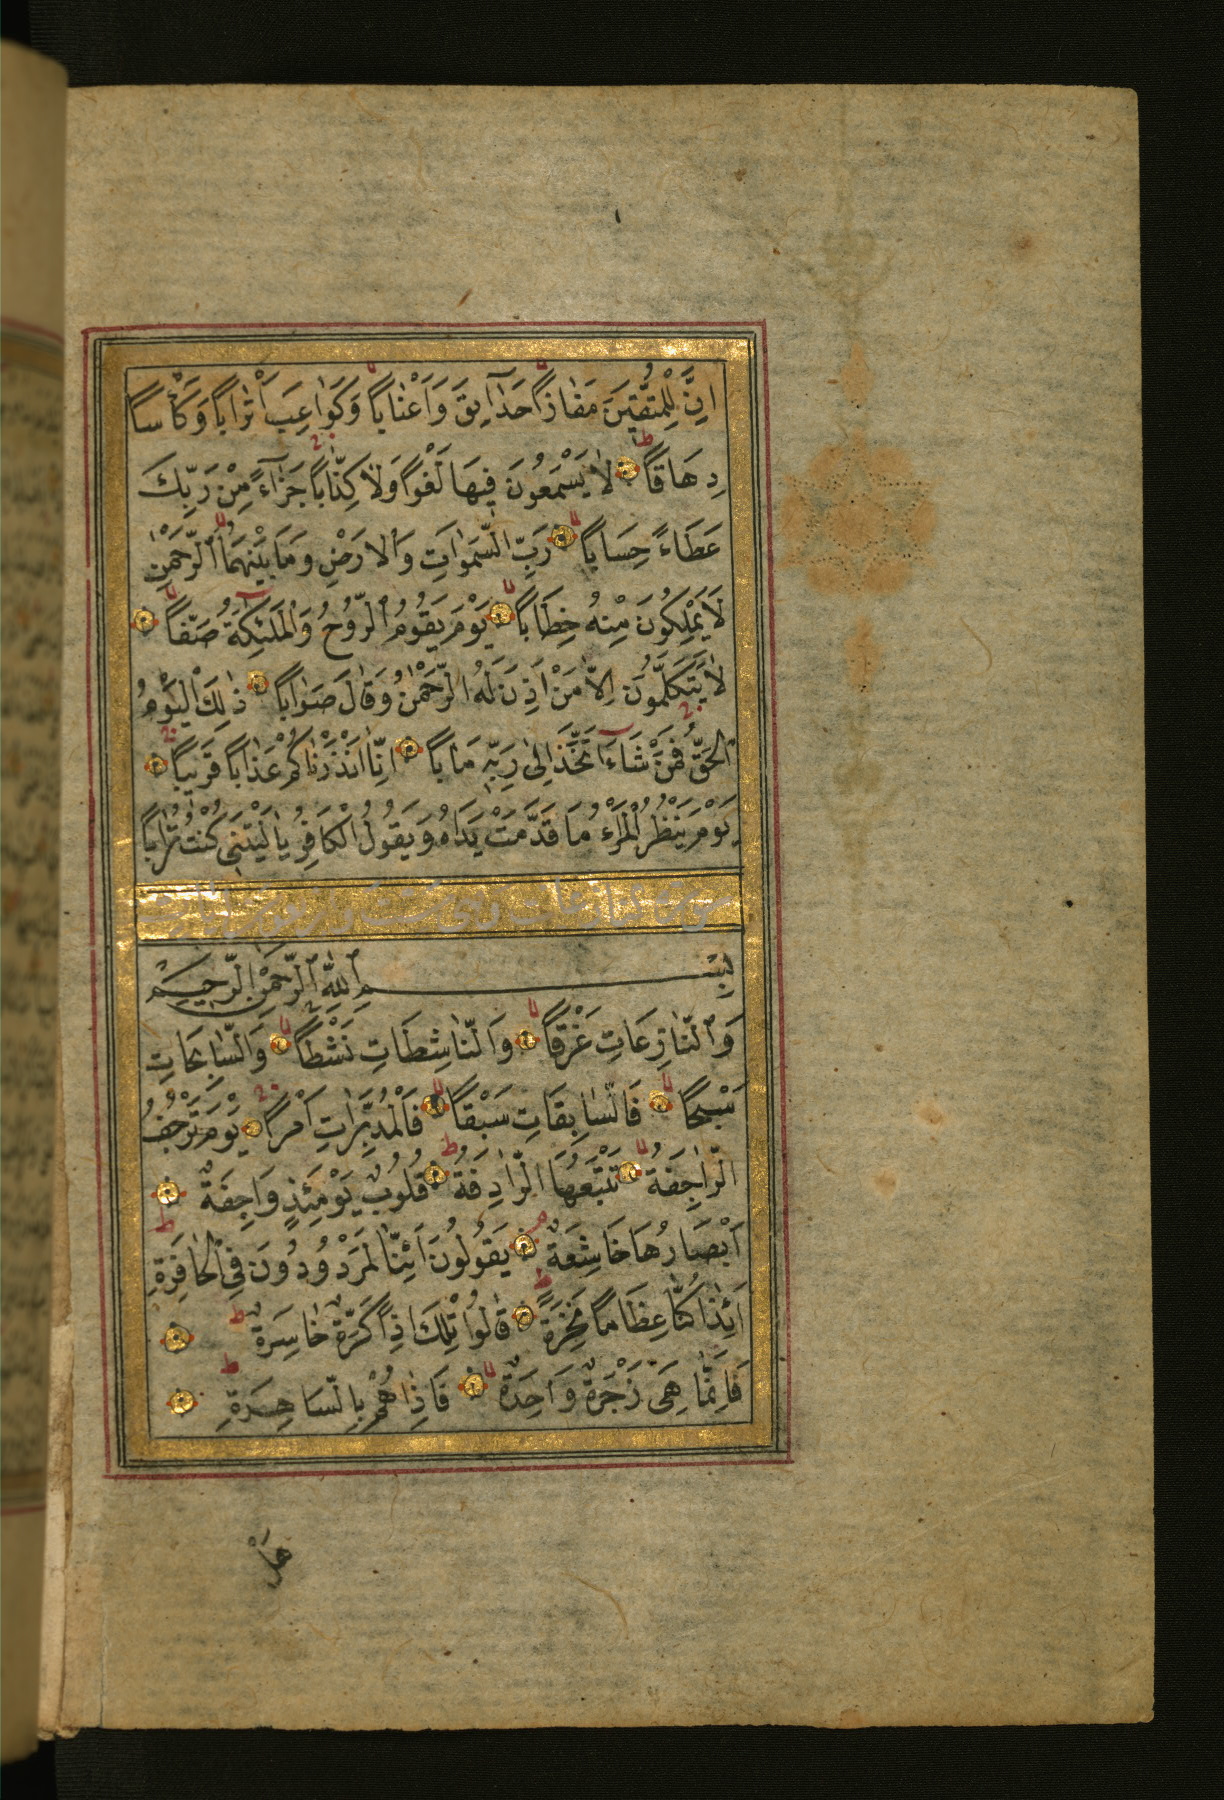 اِنَّ لِلْمُتَّقِينَ مَفَازاً حَدَآئِقَ وَاَعْنَاباً وَكَوَاعِبَ اَتْرَاباً وَكَأْسًا
دِهَاقاً لَا يَسْمَعُونَ فِيهَا لَغْوًا وَلَا كِذَّاباً جَزَآءً مِنْ رَبِّكَ
عَطَاءً حِسَاباً رَبِّ السَّمٰوَاتِ وَالْاَرْضِ وَمَا بَيْنَهُمَا الرَّحْمٰنِ
لَا يَمْلِكُونَ مِنْهُ خِطَاباً يَوْمَ يَقُومُ الرُّوحُ وَالْمَلٰئِكَةُ صَفّاً
لَا يَتَكَلَّمُونَ اِلَّا مَنْ اَذِنَ لَهُ الرَّحْمٰنُ وَقَالَ صَوَاباً ذٰلِكَ الْيَوْمُ
الْحَقُّ فَمَنْ شَآءَ اتَّخَذَ اِلىٰ رَبِّهِ مَاٰباً اِنَّا اَنْذَرْنَاكُمْ عَذَاباً قَرِيباً
يَوْمَ يَنْظُرُ الْمَرْءُ مَا قَدَّمَتْ يَدَاهُ وَيَقُولُ الْكَافِرُ يَا لَيْتَنِى كُنْتُ تُرَاباً
بِسْمِ اللّٰهِ الرَّحْمٰنِ الرَّحِيمِ
وَالنَّازِعَاتِ غَرْقاً وَالنَّاشِطَاتِ نَشْطاً وَالسَّابِحَاتِ
سَبْحًا فَالسَّابِقَاتِ سَبْقاً فَالْمُدَبِّرَاتِ اَمْرًا يَوْمَ تَرْجُفُ
الرَّاجِفَةُ تَتْبَعُهَا الرَّادِفَةُ قُلُوبٌ يَوْمَئِذٍ وَاجِفَةٌ
اَبْصَارُهَا خَاشِعَةٌ يَقُولُونَ اَئِنَّا لَمَرْدُودُونَ فِى الْحَافِرَةِ
اَئِذَا كُنَّا عِظَامًا نَخِرَةً قَالُوا تِلْكَ اِذًا كَرَّةٌ خَاسِرَةٌ
فَاِنَّمَا هِىَ زَجْرَةٌ وَاحِدَةٌ فَاِذَا هُمْ بِالسَّاهِرَةِ
هَلْ